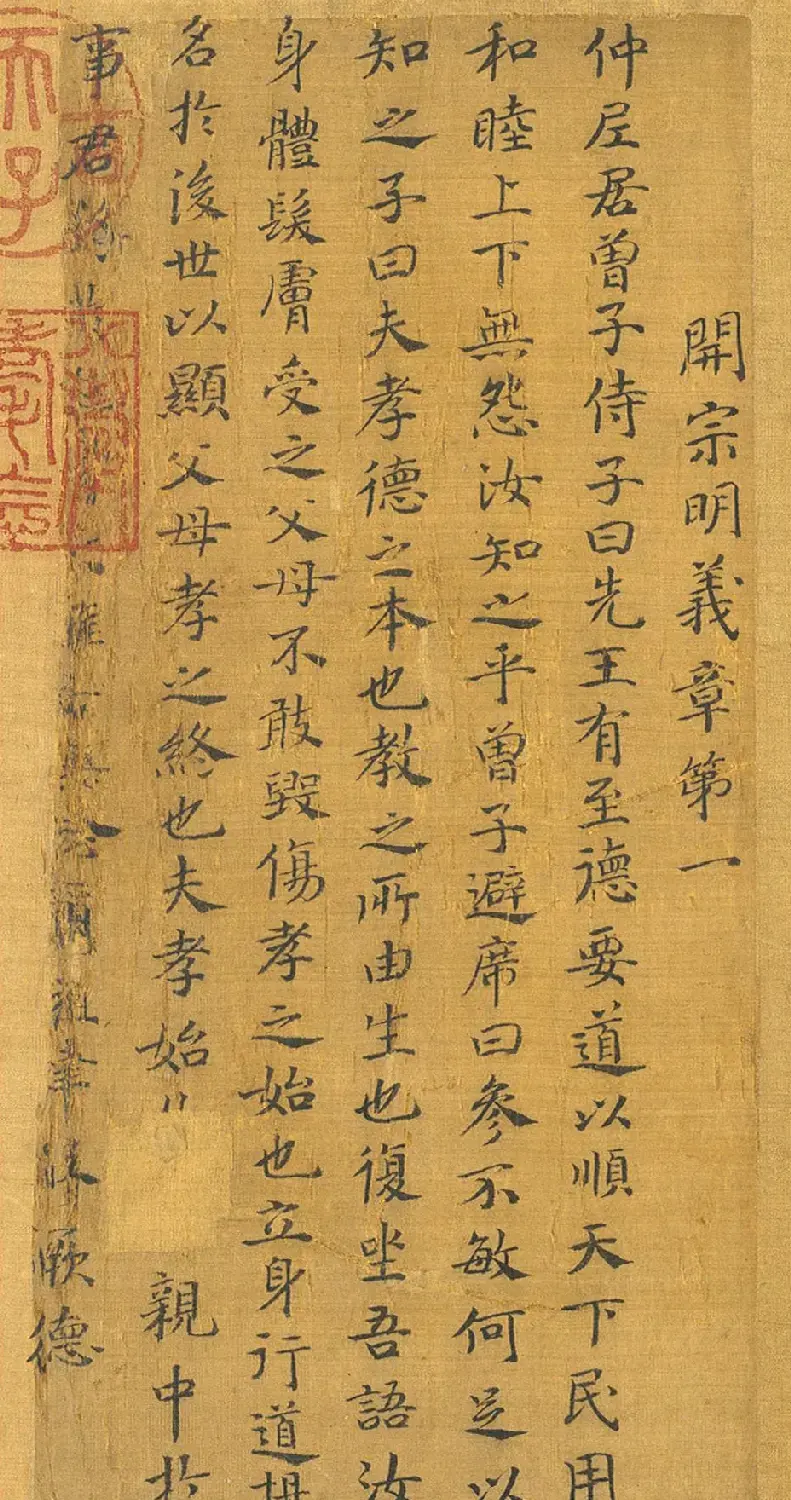 開宗明義章第一
仲尼居曾子侍子曰先王有至德要道以順天下民用
和睦上下無怨汝知之乎曾子避席曰參不敏何足以
知之子曰夫孝德之本也教之所由生也復坐吾語汝
身體髮膚受之父母不敢毀傷孝之始也立身行道揚
名於後世以顯父母孝之終也夫孝始親中於
事君終雅念爾祖聿厥德